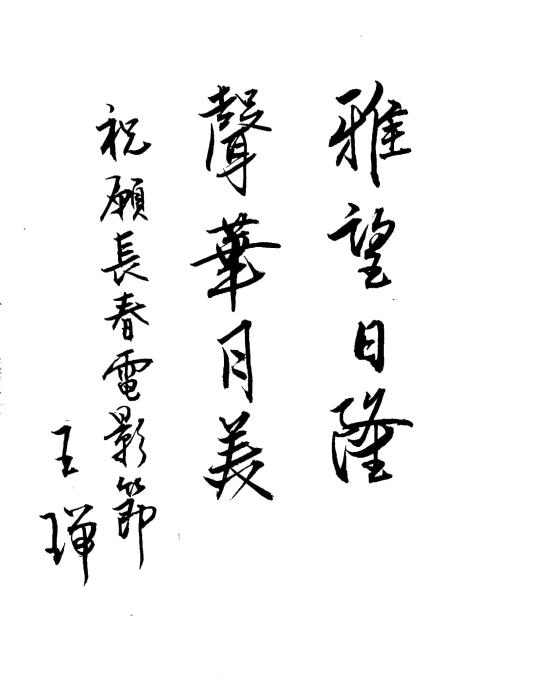 雅望日隆
聲華月美
祝願長春電影節
王琿